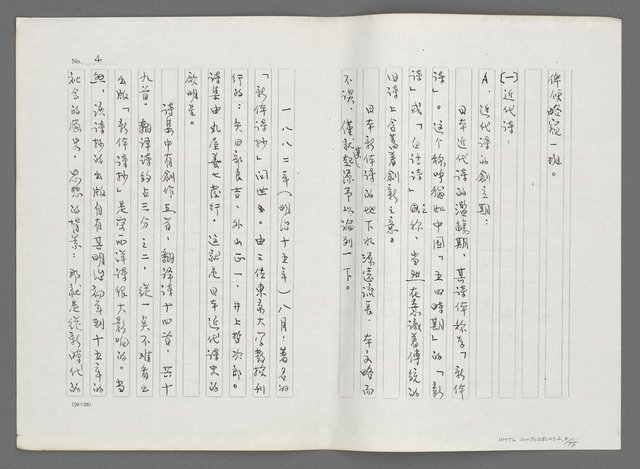 俾便略窺一斑。
(一)近代詩:
A. 近代詩的創立期:
日本近代詩的濫觴期,其詩体称為「新体
詩」。這个称呼猶如中国「五四時期」的「新
詩」或「白話詩」之称,当然在意識着傳統的
旧詩上含蓄着創新之意。
日本新体詩的地下水源遠流長,本文略而
不談,僅就其起源予以論列一下。
一八八二年(明治十五年)八月,著名的
「新体詩抄」問世。由三位東京大学教授刊
行的:矢田部良吉、外山正一、井上哲次郎。
詩集由丸屋善七發行。這就是日本近代詩史的
啟明星。
詩集中有創作五首,翻译詩十四首,共十
九首。翻译詩约占三分之二,從一点不难看出
出版「新体詩抄」是受西洋詩很大影响的。当
然,該詩抄的出版自有其明治初年到十五年的
社会的歷史、思想的背景:那就是從新時代的
No. 4
(20×20)
NMTL 2007028